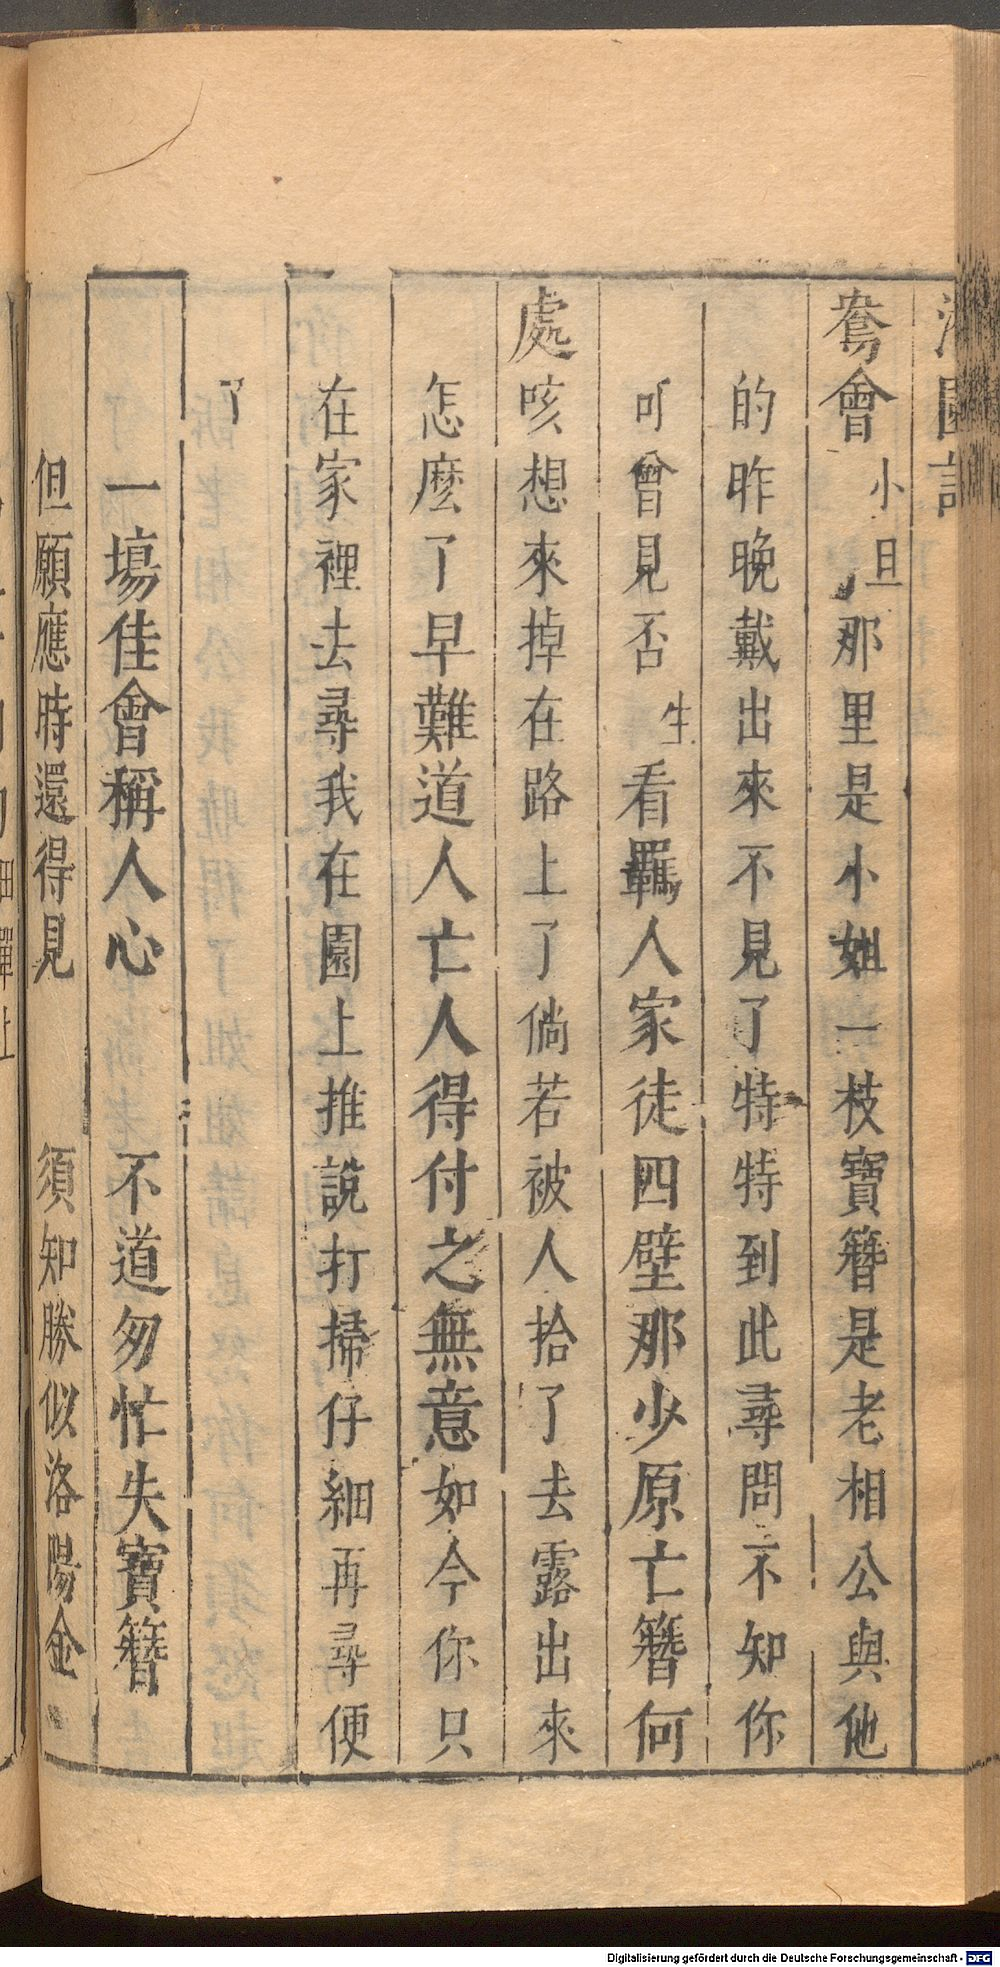 園記
鴦會小旦那里是小姐一枝寶簪是老相公與他
的昨晚戴出來不見了特特到此尋問不知你
可曾見否生看羈人家徒四壁那少原亡簪何
處咳想來掉在路上了倘若被人拾了去露出來
怎麽了早難道人亡人得付之無意如今你只
在家裡去尋我在園上推說打掃仔細再尋便
了
一塲佳會稱人心　不道匆忙失寶簪
但願應時還得見　須知勝似洛陽金
Digitalisierung gefördert durch die Deutsche Forschungsgemeinschaft - DFG